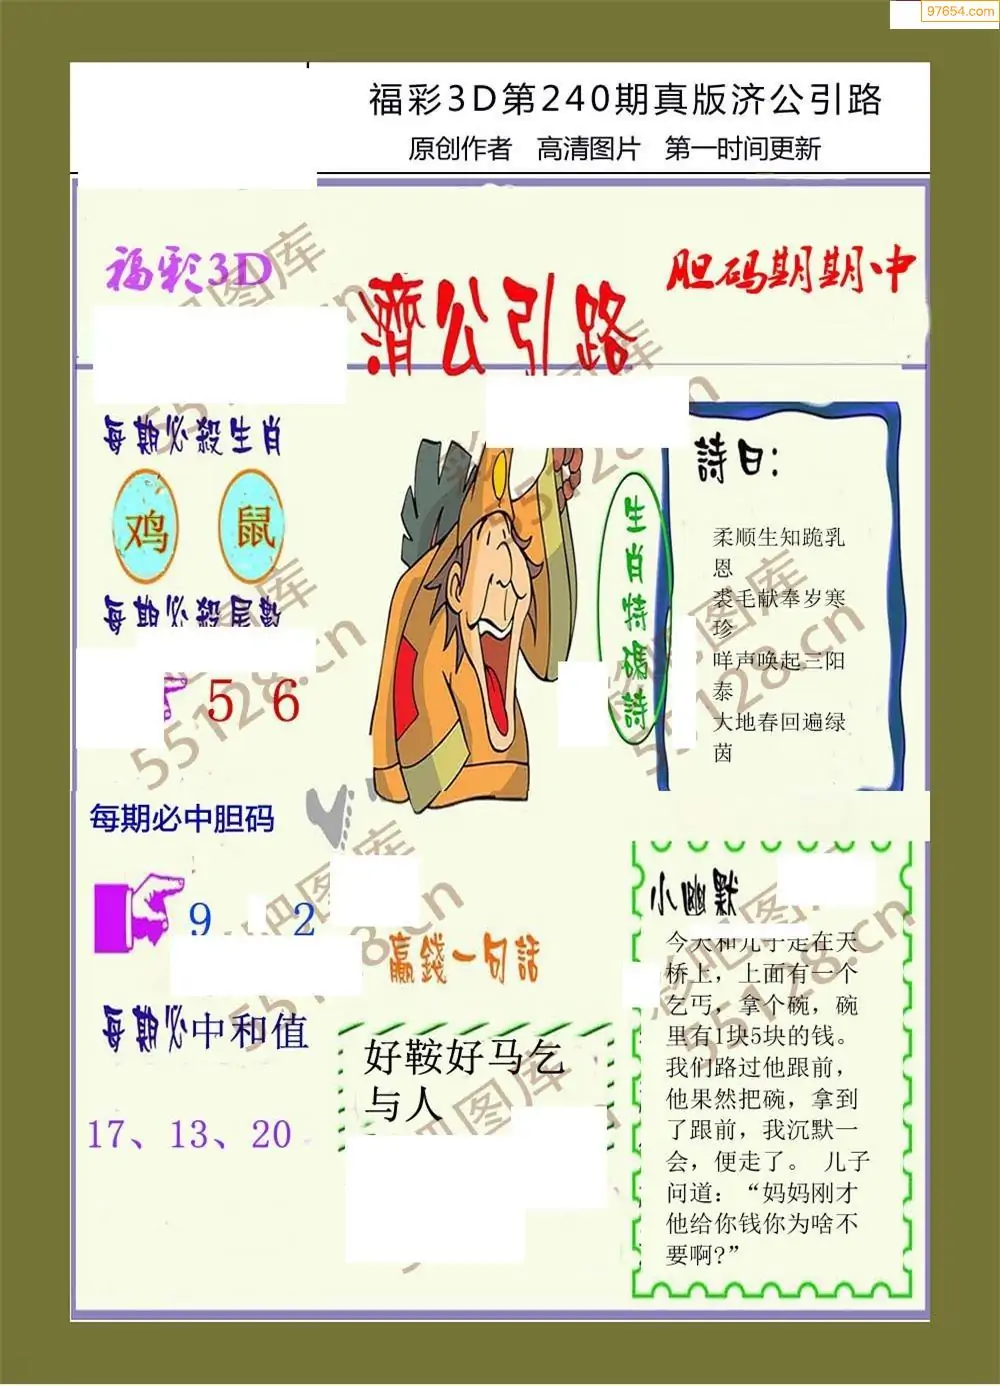 97654.com
福彩3D第240期真版济公引路
原创作者 高清图片 第一时间更新
福彩3D
胆码期期中
濟公引路
每期必殺生肖
鸡 鼠
每期必殺尾數
5 6
生肖特碼詩
詩曰:
柔顺生知跪乳
恩
裘毛献奉岁寒
珍
咩声唤起三阳
泰
大地春回遍绿
茵
每期必中胆码
9 2
每期必中和值
17、13、20
贏錢一句話
好鞍好马乞
与人
小幽默
今天和儿子走在天
桥上，上面有一个
乞丐，拿个碗，碗
里有1块5块的钱。
我们路过他跟前，
他果然把碗，拿到
了跟前，我沉默一
会，便走了。 儿子
问道：“妈妈刚才
他给你钱你为啥不
要啊?”
彩吧图库
55128.cn